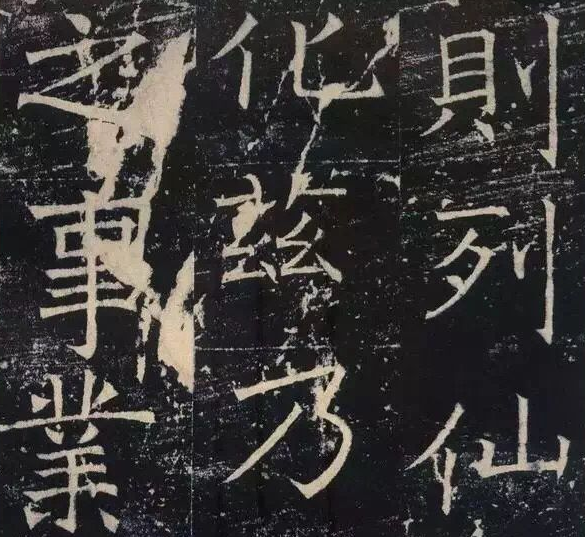 則列仙
化茲乃
之事業